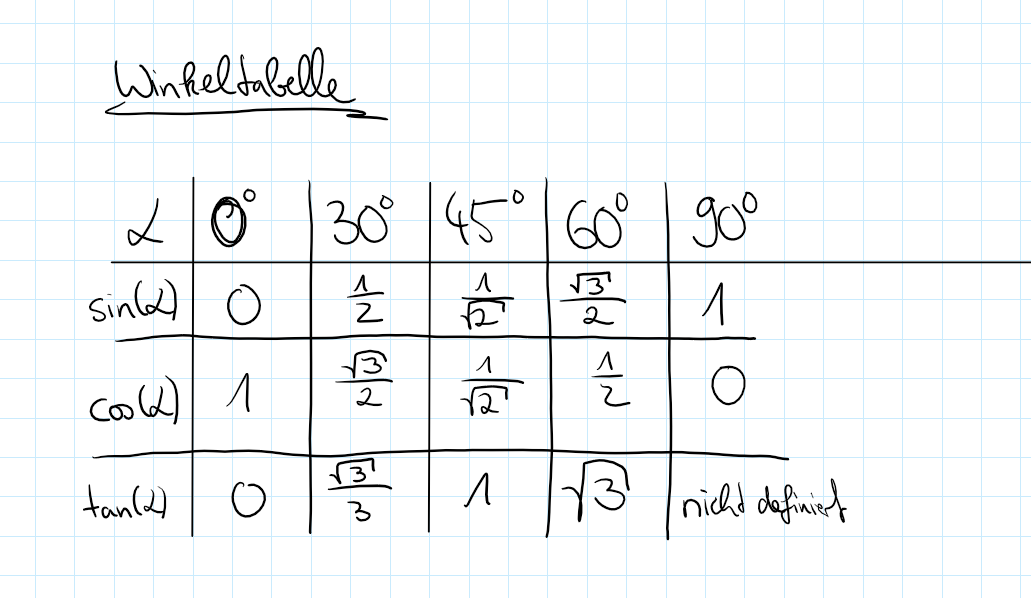 Winkeltabelle
α 0° 30° 45° 60° 90°
sin(α) 0 1/2 1/√2 √3/2 1
cos(α) 1 √3/2 1/√2 1/2 0
tan(α) 0 √3/3 1 √3 nicht definiert